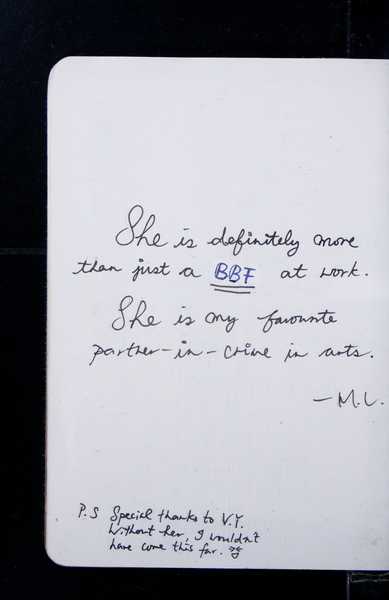 She is definitely more
than just a BBF at work.
She is my favourite
partner-in-crime in arts.
-M.L.
P.S Special thanks to V.Y.
Without her, I wouldn't
have come this far.